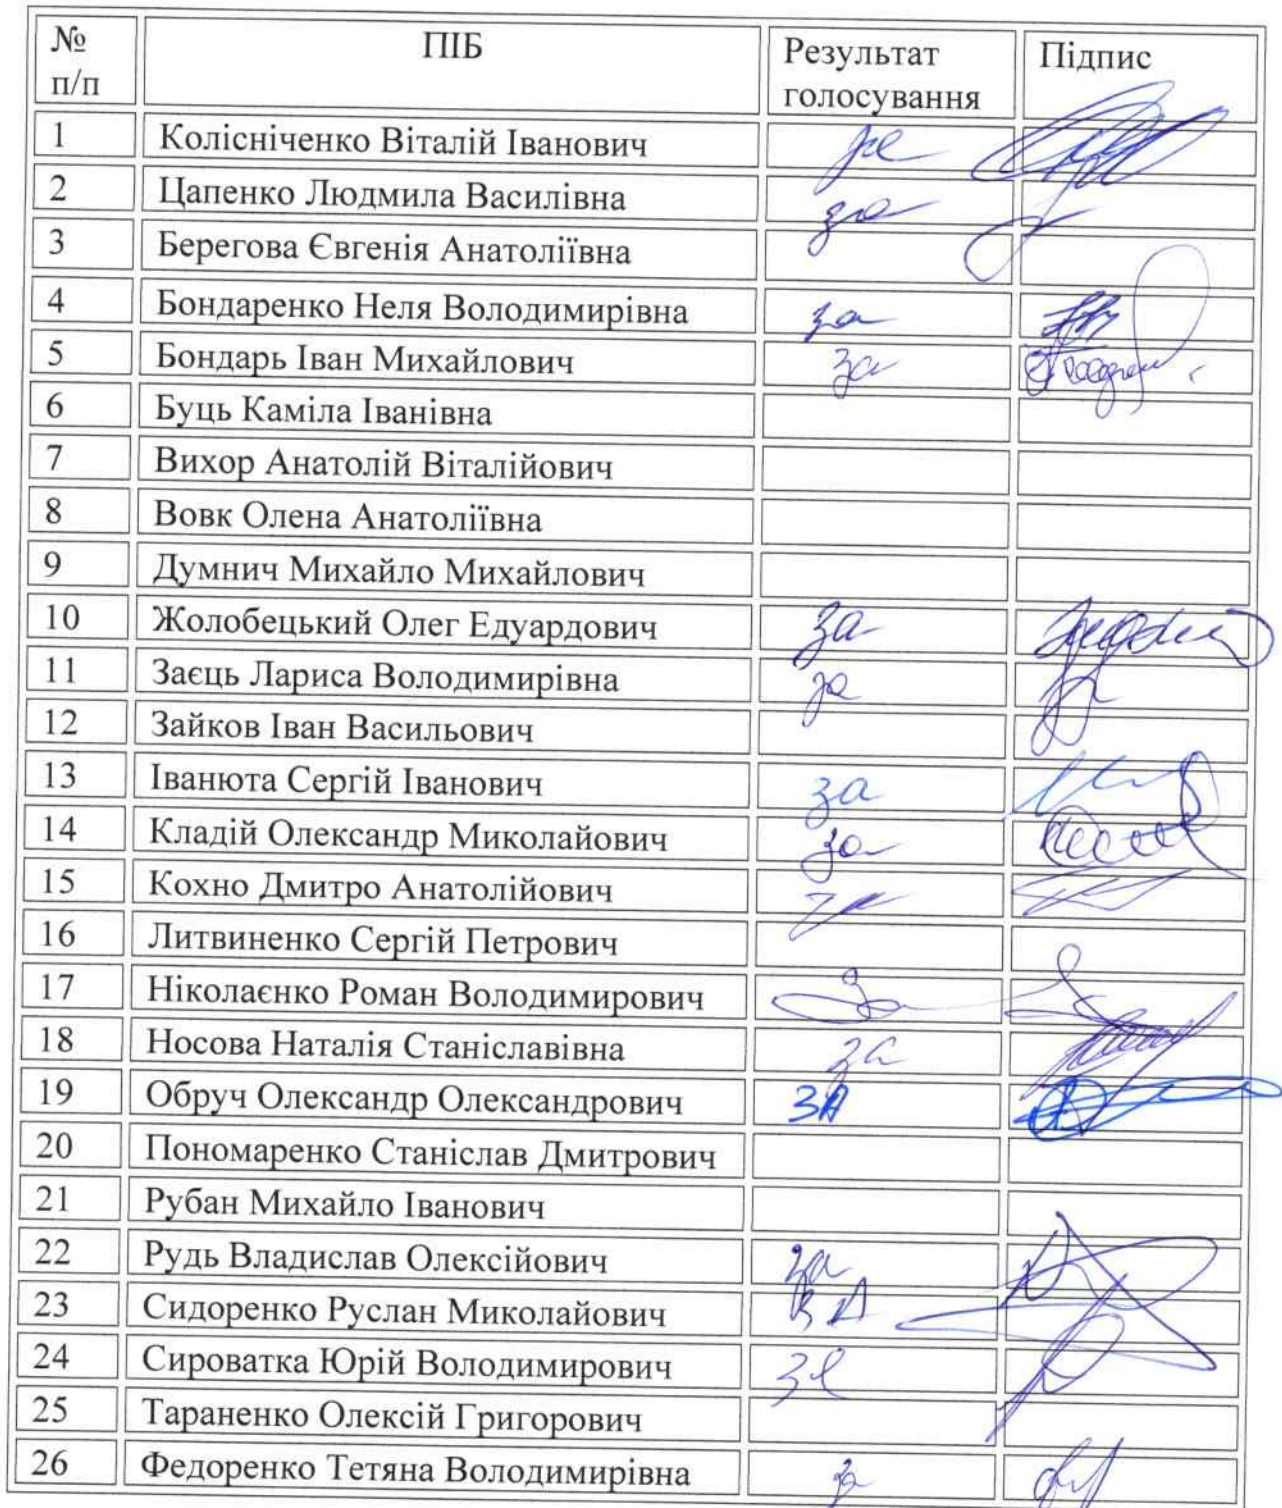 № п/п ПІБ Результат голосування Підпис
1 Колісніченко Віталій Іванович за
2 Цапенко Людмила Василівна за
3 Берегова Євгенія Анатоліївна
4 Бондаренко Неля Володимирівна за
5 Бондарь Іван Михайлович за
6 Буць Каміла Іванівна
7 Вихор Анатолій Віталійович
8 Вовк Олена Анатоліївна
9 Думнич Михайло Михайлович
10 Жолобецький Олег Едуардович за
11 Заєць Лариса Володимирівна за
12 Зайков Іван Васильович
13 Іванюта Сергій Іванович за
14 Кладій Олександр Миколайович за
15 Кохно Дмитро Анатолійович за
16 Литвиненко Сергій Петрович
17 Ніколаєнко Роман Володимирович за
18 Носова Наталія Станіславівна за
19 Обруч Олександр Олександрович ЗА
20 Пономаренко Станіслав Дмитрович
21 Рубан Михайло Іванович
22 Рудь Владислав Олексійович за
23 Сидоренко Руслан Миколайович ЗА
24 Сироватка Юрій Володимирович за
25 Тараненко Олексій Григорович
26 Федоренко Тетяна Володимирівна за